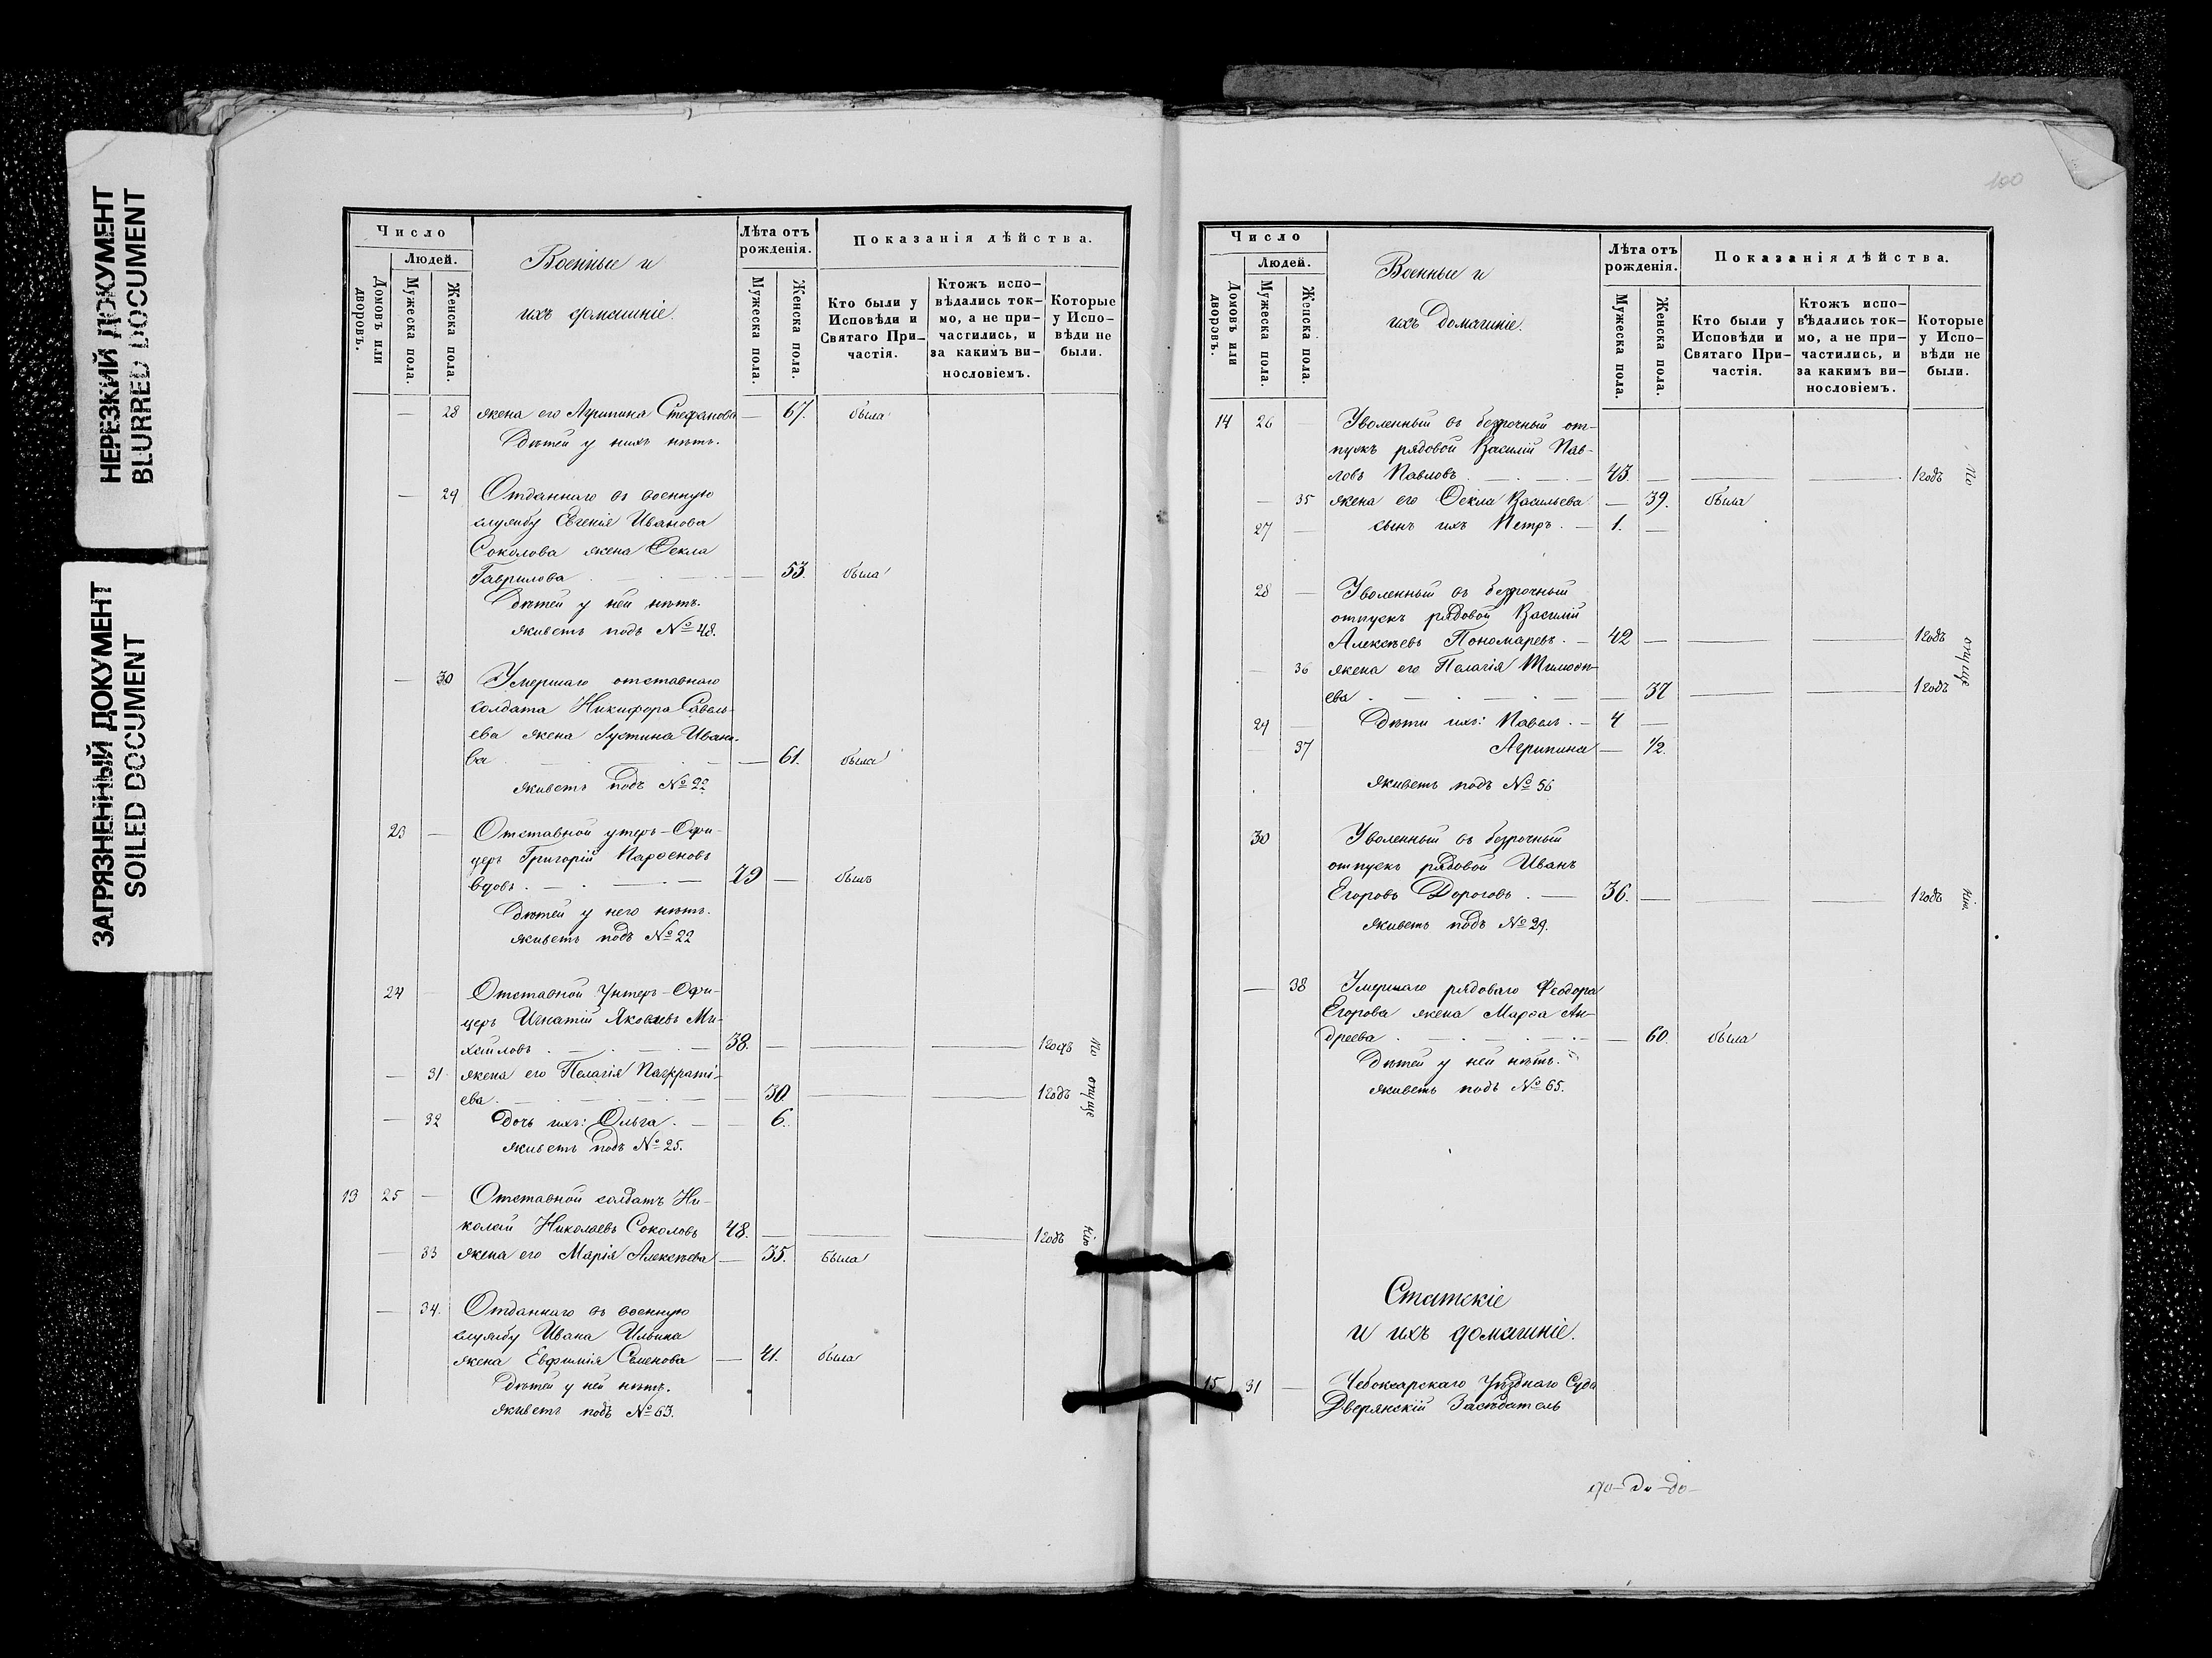 НЕРЕЗКИЙ ДОКУМЕНТ
BLURRED DOCUMENT
ЗАГРЯЗНЕННЫЙ ДОКУМЕНТ
SOILED DOCUMENT
Число
Людей.
Домовъ или дворовъ.
Мужеска пола.
Женска пола.
Военные и
ихъ домашніе.
Лѣта отъ рожденія.
Мужеска пола.
Женска пола.
Показанія дѣйства.
Кто были у Исповѣди и Святаго Причастія.
Ктожъ исповѣдались токмо, а не причастились, и за какимъ винословіемъ.
Которые у Исповѣди не были.
— 28 жена его Агрипина Стефанова — 67. была
Дѣтей у нихъ нѣтъ.
— 29 Отданнаго въ военную
службу Евгенія Иванова
Соколова жена Ѳекла
Гаврилова — 53. была
Дѣтей у ней нѣтъ.
живетъ подъ № 48.
— 30 Умершаго отставнаго
солдата Никифора Савель-
ева жена Іустина Ивано-
ва — 61. была
живетъ подъ № 22
23 — Отставной унтеръ-Офи-
церъ Григорій Парѳеновъ
вдовъ — 79 — былъ
Дѣтей у него нѣтъ.
живетъ подъ № 22
24 — Отставной Унтеръ-Офи-
церъ Игнатій Яковлевъ Ми-
хайловъ 38. — 1 годъ
— 31 жена его Пелагія Панкраті-
ева — 30. 1 годъ
— 32 дочь ихъ: Ольга — 6.
живетъ подъ № 25.
13 25 — Отставной солдатъ Ни-
колай Николаевъ Соколовъ 48. — 1 годъ
— 33 жена его Марія Алексѣева — 35. была
— 34. Отданнаго въ военную
службу Ивана Ильина
жена Евфимія Семенова — 41. была
Дѣтей у ней нѣтъ.
живетъ подъ № 63.
По опуще нію
100
Число
Людей.
Домовъ или дворовъ.
Мужеска пола.
Женска пола.
Военные и
ихъ Домашніе.
Лѣта отъ рожденія.
Мужеска пола.
Женска пола.
Показанія дѣйства.
Кто были у Исповѣди и Святаго Причастія.
Ктожъ исповѣдались токмо, а не причастились, и за какимъ винословіемъ.
Которые у Исповѣди не были.
14 26 — Уволенный въ безсрочный от-
пускъ рядовой Василій Пав-
ловъ Павловъ — 43. — 1 годъ
— 35 жена его Ѳекла Васильева — 39. была
27 — сынъ ихъ Петръ — 1. —
28 — Уволенный въ безсрочный
отпускъ рядовой Василій
Алексѣевъ Пономаревъ — 42 — 1 годъ
— 36 жена его Пелагія Тимоѳе-
ева — 37 1 годъ
29 — Дѣти ихъ: Павелъ — 4 —
— 37 Агрипина — 1/2.
живетъ подъ № 56
30 Уволенный въ безсрочный
отпускъ рядовой Иванъ
Егоровъ Дороговъ — 36. — 1 годъ
живетъ подъ № 29.
— 38 Умершаго рядоваго Ѳеодора
Егорова жена Марѳа Ан-
дреева — 60. была
Дѣтей у ней нѣтъ.
живетъ подъ № 65.
Статскіе
и ихъ домашніе.
15 31 — Чебоксарскаго Уѣзднаго Суда
Дворянскій Засѣдатель
По опуще нію